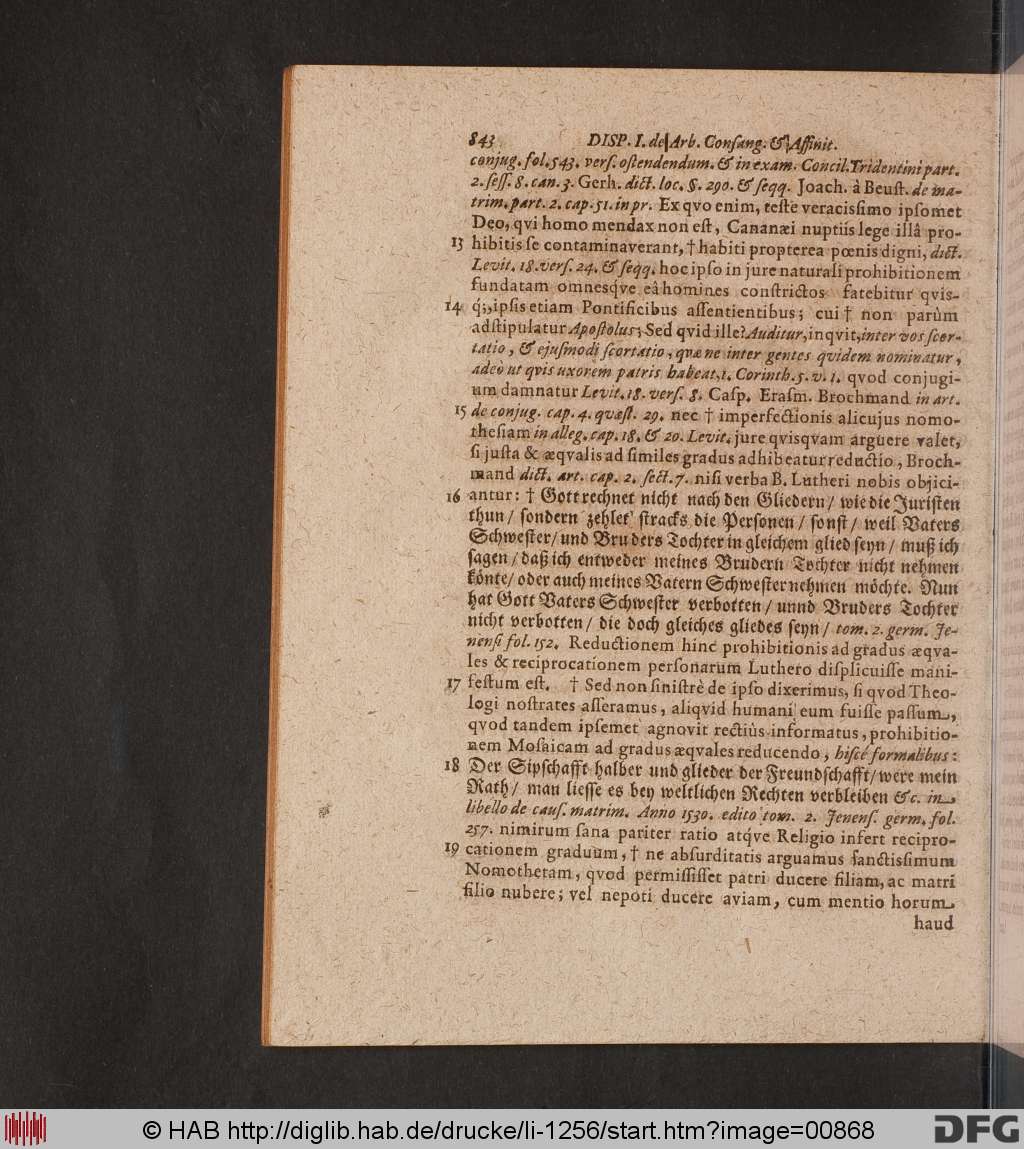 843 DISP. I. de Arb. Consang. & Affinit.
conjug. fol. 543. vers. ostendendum. & in exam. Concil. Tridentini part.
2. sess. 8. can. 3. Gerh. dict. loc. §. 290. & seqq. Joach. à Beust. de ma-
trim. part. 2. cap. 51. in pr. Ex qvo enim, teste veracissimo ipsomet
Deo, qvi homo mendax non est, Cananæi nuptiis lege illâ pro-
13 hibitis se contaminaverant, † habiti propterea pœnis digni, dict.
Levit. 18. vers. 24. & seqq. hoc ipso in jure naturali prohibitionem
fundatam omnesq́ve eâ homines constrictos fatebitur qvis-
14 q́;, ipsis etiam Pontificibus assentientibus; cui † non parùm
adstipulatur Apostolus; Sed qvid ille? Auditur, inqvit, inter vos scor-
tatio, & ejusmodi scortatio, quæ ne inter gentes qvidem nominatur,
adeo ut qvis uxorem patris habeat, 1. Corinth. 5. v. 1. qvod conjugi-
um damnatur Levit. 18. vers. 8. Casp. Erasm. Brochmand in art.
15 de conjug. cap. 4. quæst. 29. nec † imperfectionis alicujus nomo-
thesiam in alleg. cap. 18. & 20. Levit. jure qvisqvam arguere valet,
si justa & æqvalis ad similes gradus adhibeatur reductio, Broch-
mand dict. art. cap. 2. sect. 7. nisi verba B. Lutheri nobis objici-
16 antur: † Gott rechnet nicht nach den Gliedern / wie die Juristen
thun / sondern zehlet stracks die Personen / sonst / weil Vaters
Schwester / und Bruders Tochter in gleichem glied seyn / muß ich
sagen / daß ich entweder meines Brudern Tochter nicht nehmen
könte / oder auch meines Vatern Schwester nehmen möchte. Nun
hat Gott Vaters Schwester verbotten / unnd Bruders Tochter
nicht verbotten / die doch gleiches gliedes seyn / tom. 2. germ. Je-
nensi fol. 152. Reductionem hinc prohibitionis ad gradus æqva-
les & reciprocationem personarum Luthero displicuisse mani-
17 festum est. † Sed non sinistrè de ipso dixerimus, si qvod Theo-
logi nostrates asseramus, aliqvid humani eum fuisse passum,
qvod tandem ipsemet agnovit rectiùs informatus, prohibitio-
nem Mosaicam ad gradus æqvales reducendo, hisce formalibus:
18 Der Sipschafft halber und glieder der Freundschafft / were mein
Rath / man liesse es bey weltlichen Rechten verbleiben &c. in
libello de caus. matrim. Anno 1530. edito tom. 2. Jenens. germ. fol.
257. nimirum sana pariter ratio atq́ve Religio infert recipro-
19 cationem graduum, † ne absurditatis arguamus sanctissimum
Nomothetam, qvod permississet patri ducere filiam, ac matri
filio nubere; vel nepoti ducere aviam, cum mentio horum
haud
© HAB http://diglib.hab.de/drucke/li-1256/start.htm?image=00868
DFG